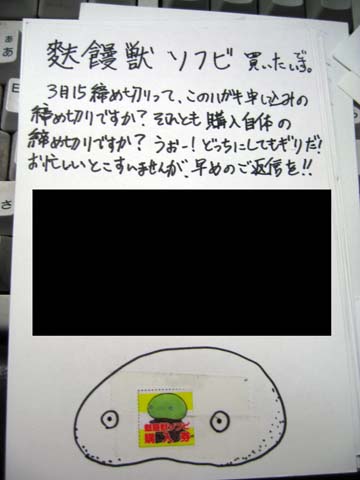 麩饅獣 ソフビ 買いたいです。
3月15締め切りって、このハガキ申し込みの
締め切りですか？それとも購入自体の
締め切りですか？うぉー！どっちにしてもギリだ！
お忙しいとこすいませんが、早めのご返信を!!
麩饅獣ソフビ
購入券